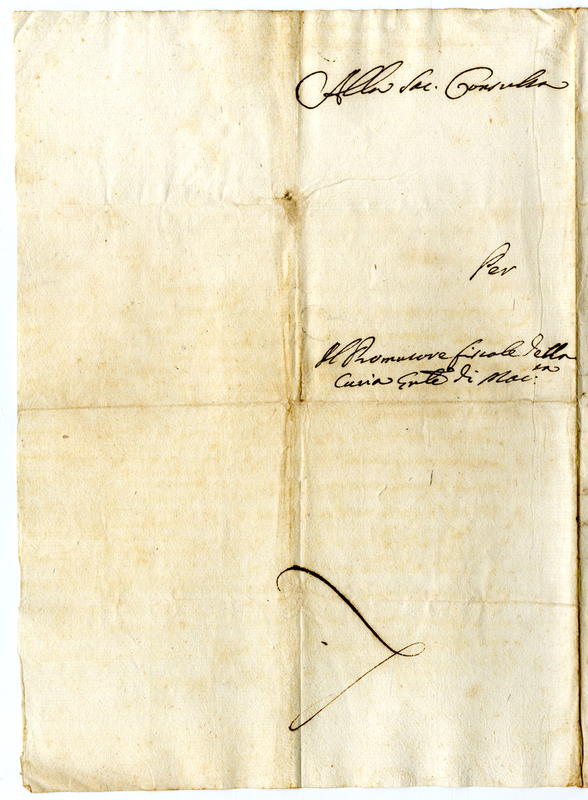 Alla Sac. Consulta
Per
Il Promotore fiscale della
Curia Gnle di Mac.ta